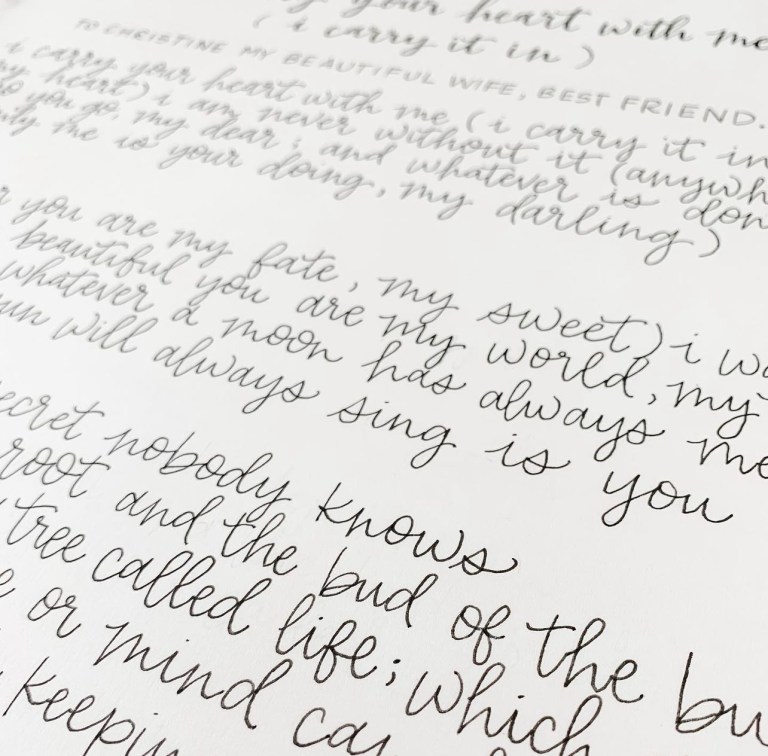 your heart with me
( i carry it in )
TO CHRISTINE MY BEAUTIFUL WIFE, BEST FRIEND.
i carry your heart with me ( i carry it in
my heart) i am never without it (anywh
you go, my dear; and whatever is don
me is your doing, my darling)
you are my fate, my sweet) i wa
beautiful you are my world, my
whatever a moon has always me
un will always sing is you
ecret nobody knows
root and the bud of the bu
tree called life; which
or mind can
keepin